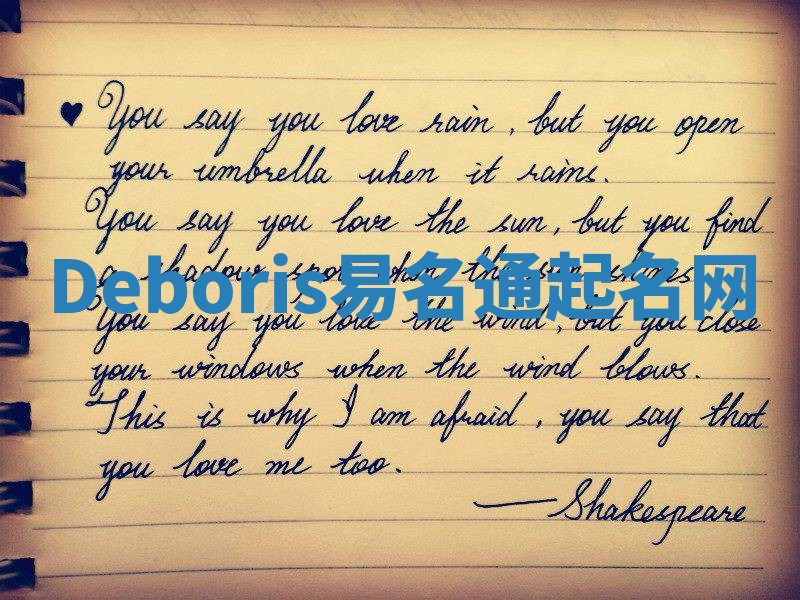 ♥ You say you love rain, but you open
your umbrella when it rains.
You say you love the sun, but you find
a shadow spot when the sun shines
Deboris易名通起名网
You say you love the wind, but you close
your windows when the wind blows.
This is why I am afraid, you say that
you love me too.
—Shakespeare